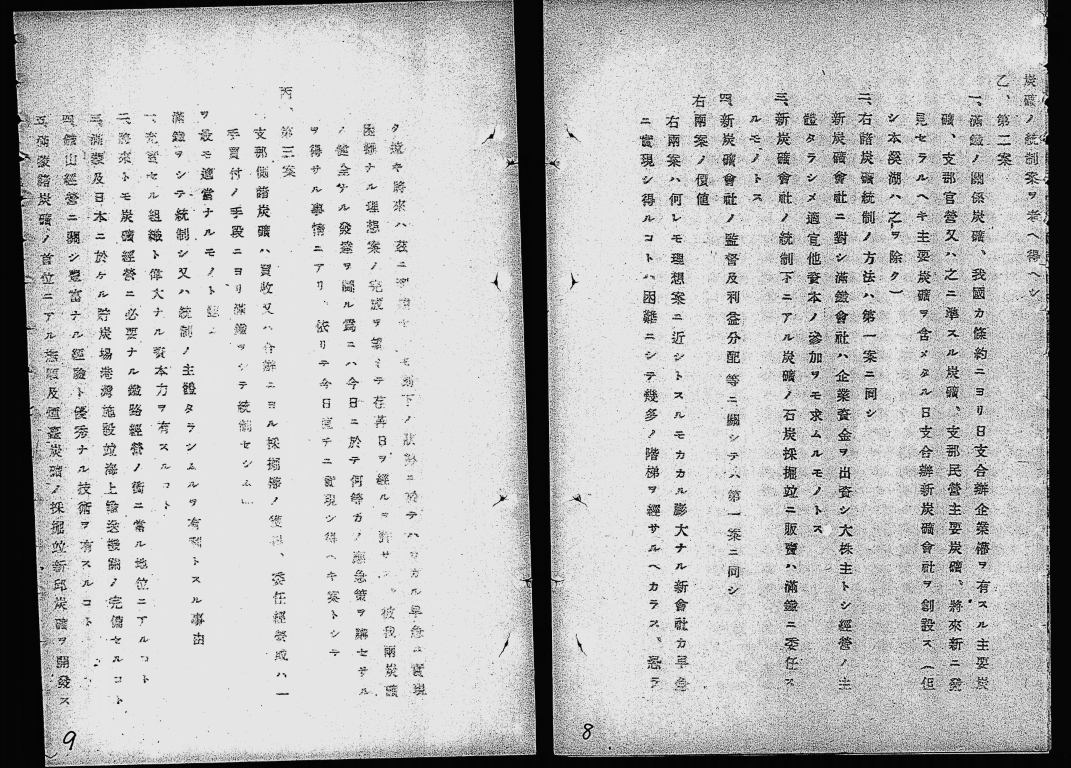 炭礦ノ統制案ヲ考ヘ得ヘシ
乙、第二案
一、滿鐵ノ關係炭礦、我國カ條約ニヨリ日支合辦企業權ヲ有スル主要炭
礦、支那官營又ハ之ニ準スル炭礦、支那民營主要炭礦、將來新ニ發
見セラルヘキ主要炭礦ヲ含メタル日支合辦新炭礦會社ヲ創設ス（但
シ本溪湖ハ之ヲ除ク）
二、右諸炭礦統制ノ方法ハ第一案ニ同シ
新炭礦會社ニ對シ滿鐵會社ハ企業資金ヲ出資シ大株主トシ經營ノ主
體タラシメ適宜他資本ノ參加ヲモ求ムルモノトス
三、新炭礦會社ノ統制下ニアル炭礦ノ石炭採掘竝ニ販賣ハ滿鐵ニ委任ス
ルモノトス
四、新炭礦會社ノ監督及利益分配等ニ關シテハ第一案ニ同シ
右兩案ノ價値
右兩案ハ何レモ理想案ニ近シトスルモカカル膨大ナル新會社カ早急
ニ實現シ得ルコトハ困難ニシテ幾多ノ階梯ヲ經サルヘカラス、恐ラ
8
ク遠キ將來ハ茲ニ
下ノ
ニ於テハカカル早急ニ實現
困難ナル理想案ノ完成ヲ
テ荏苒日ヲ經ルヲ許サス、彼我兩炭礦
ノ健全ナル發達ヲ圖ル爲ニハ今日ニ於テ何等カノ應急策ヲ講セサル
ヲ得サル事情ニアリ、依リテ今日直チニ實現シ得ヘキ案トシテ
丙、第三案
「支那側諸炭礦ハ買收又ハ合辦ニヨル採掘權ノ獲得、委任經營或ハ一
手買付ノ手段ニヨリ滿鐵ヲシテ統制セシム」
ヲ最モ適當ナルモノト
滿鐵ヲシテ統制シ又ハ統制ノ主體タラシムルヲ有利トスル事由
一、充實セル組織ト偉大ナル資本力ヲ有スルコト
二、將來トモ炭礦經營ニ必要ナル鐵路經營ノ衝ニ當ル地位ニアルコト
三、滿蒙及日本ニ於ケル貯炭場港灣施設竝海上輸送機關ノ完備セルコト
四、鑛山經營ニ關シ豐富ナル經驗ト優秀ナル技術ヲ有スルコト
五、滿蒙諸炭礦ノ首位ニアル撫順及煙臺炭礦ノ採掘竝新邱炭礦ヲ開發ス
9